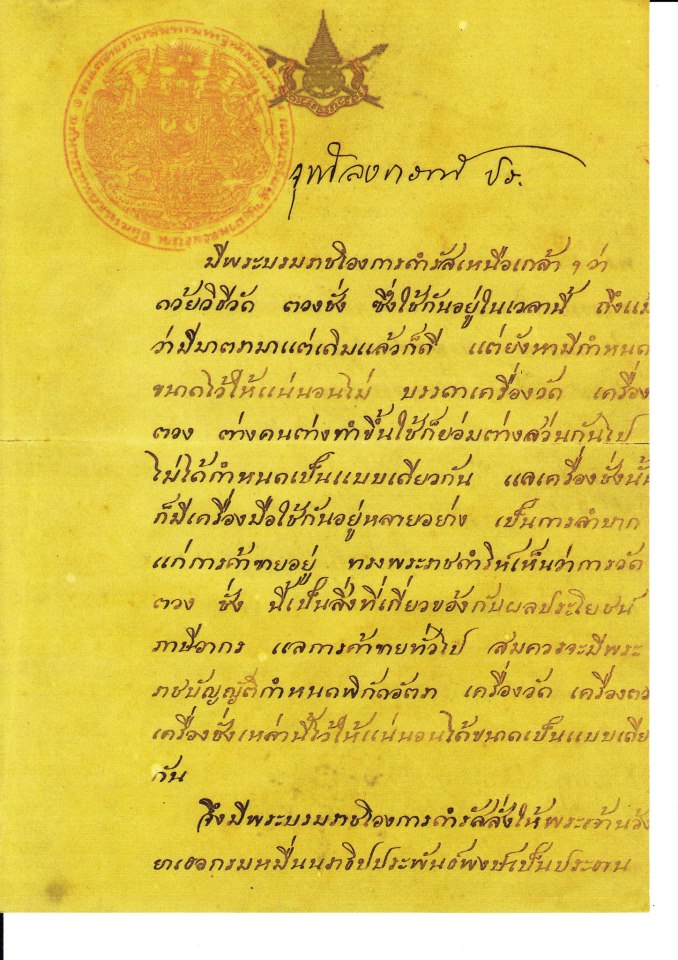 จุฬาลงกรณ์ ปร.
มีพระบรมราชโองการดำรัสเหนือเกล้า ฯ ว่า
ด้วยวิธีวัด ตวงชั่ง ซึ่งใช้กันอยู่ในเวลานี้ ถึงแม้
ว่ามีมาตรามาแต่เดิมแล้วก็ดี แต่ยังหามีกำหนด
ขนาดไว้ให้แน่นอนไม่ บรรดาเครื่องวัด เครื่อง
ตวง ต่างคนต่างทำขึ้นใช้ก็ย่อมต่างส่วนกันไป
ไม่ได้กำหนดเป็นแบบเดียวกัน แลเครื่องชั่งนั้น
ก็มีเครื่องมือใช้กันอยู่หลายอย่าง เป็นการลำบาก
แก่การค้าขายอยู่ ทรงพระราชดำริห์เห็นว่าการวัด
ตวง ชั่ง นี้เป็นสิ่งที่เกี่ยวข้องกับผลประโยชน์
ภาษีอากร แลการค้าขายทั่วไป สมควรจะมีพระ
ราชบัญญัติกำหนดพิกัดอัตรา เครื่องวัด เครื่องตว
เครื่องชั่งเหล่านี้ไว้ให้แน่นอนได้ขนาดเป็นแบบเดีย
กัน
จึงมีพระบรมราชโองการดำรัสสั่งให้พระเจ้าน้อง
ยาเธอกรมหมื่นนราธิปประพันธ์พงษ์เป็นประธาน